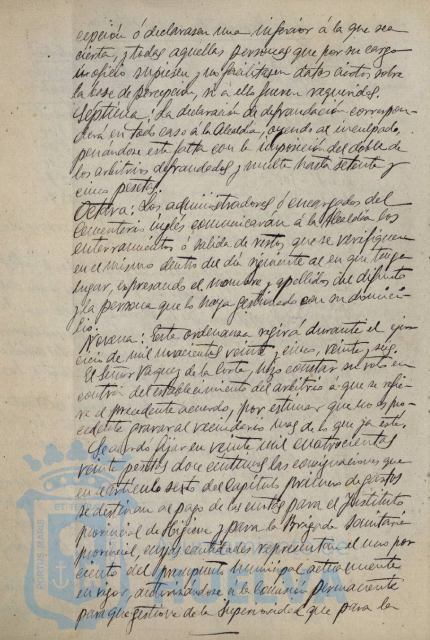 cepción ó declarasen una inferior á la que sea
cierta, y todas aquellas personas que por su cargo
u oficio supiesen y no facilitasen datos ciertos sobre
la base de percepción, si á ello fuesen requeridos.
Septima: La declaración de defraudación correspon-
derá en todo caso á la Alcaldia, oyendo al inculpado,
penandose esta falta con la imposición del doble de
los arbitrios defraudados y multa hasta setenta y
cinco pesetas.
Octava: Los administradores ó encargados del
Cementerio inglés comunicarán á la Alcaldia los
enterramientos ó salida de restos que se verifiquen
en el mismo dentro del día siguiente al en que tenga
lugar, expresando el nombre y apellidos del difunto
y la persona que lo haya gestionado con su domici-
lio.
Novena: Esta ordenanza regirá durante el ejer-
cicio de mil novecientos veinte y cinco, veinte y seis.
El Señor Vazquez de la Corte, hizo constar su voto en
contra del establecimiento del arbitrio á que se refie-
re el precedente acuerdo, por estimar que no es pro-
cedente gravar al vecindario mas de lo que ya está.
Se acordó fijar en veinte mil cuatrocientas
veinte pesetas doce centimos las consignaciones que
en el artículo sexto del Capítulo primero de gastos
se destinan al pago de los cuotas para el Instituto
provincial de Higiene y para la Brigada Sanitaria
provincial, cuyas cantidades representan el uno por
ciento del presupuesto municipal actualmente
en vigor, autorizandose á la Comisión permanente
para que gestione de la Superioridad que para la
PORTUS MARIS